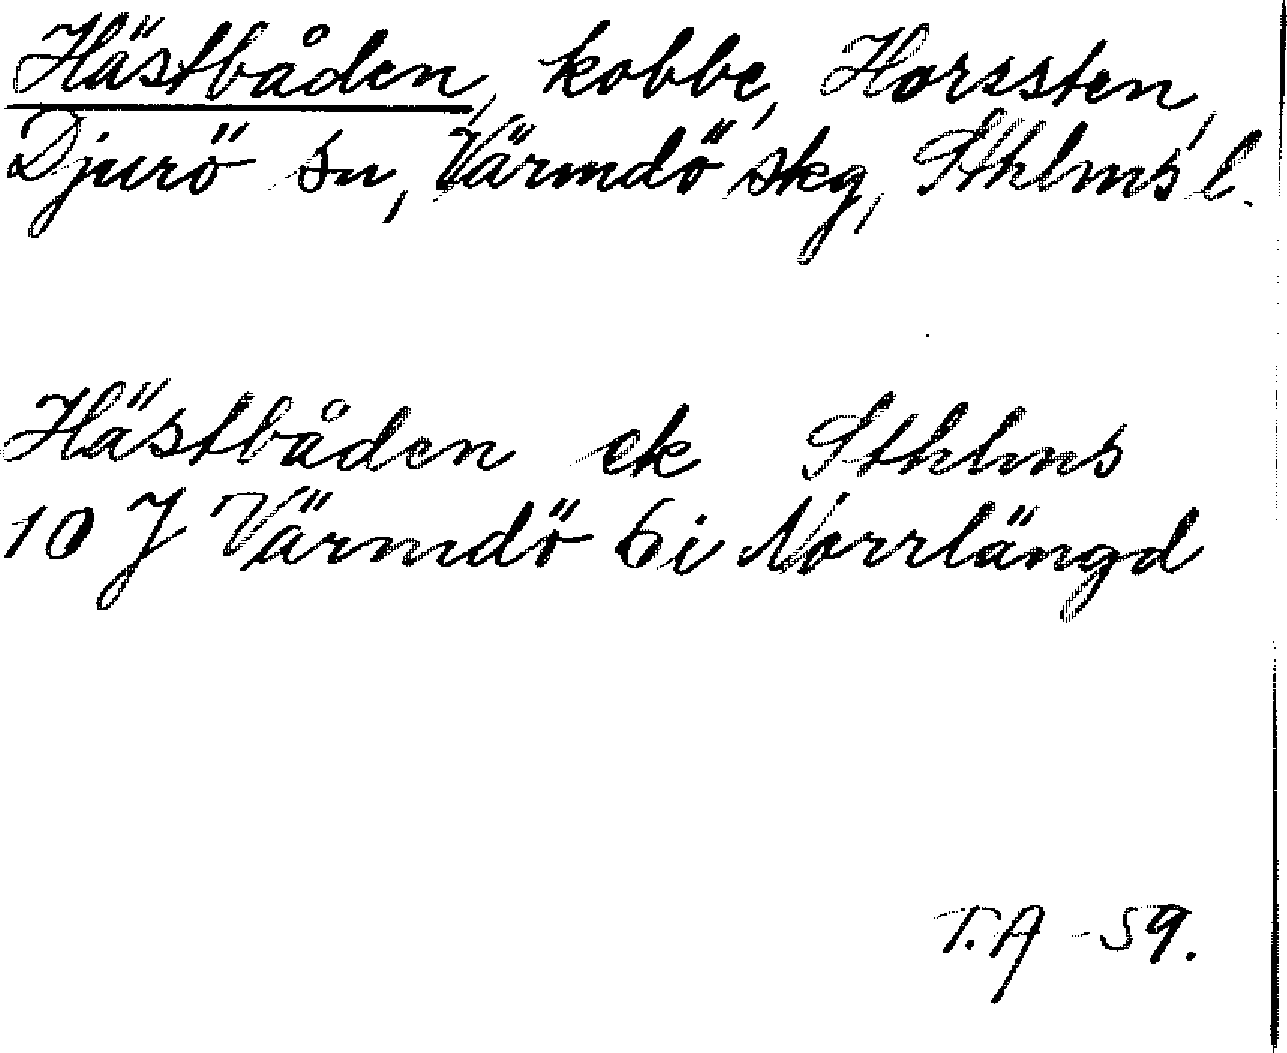 Hästbåden, kobbe, Horssten,
Djurö sn, Värmdö skg, Sthlms l.
Hästbåden ek Sthlms
10 J Värmdö 6i Norrlängd
T.A -59.